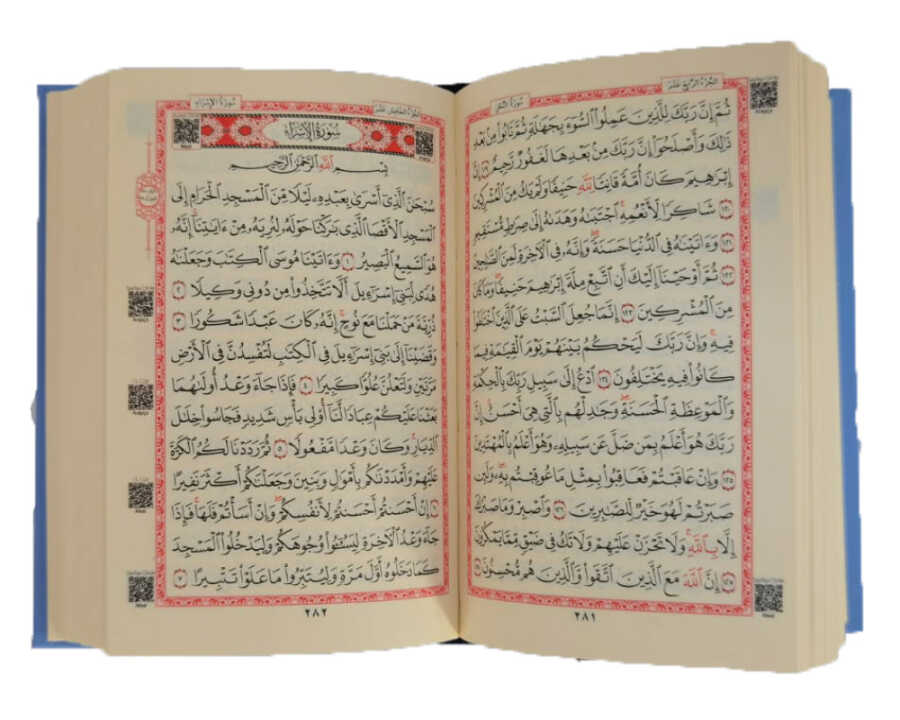 الجزء الرابع عشر
سورة النحل
ثُمَّ إِنَّ رَبَّكَ لِلَّذِينَ عَمِلُوا۟ ٱلسُّوٓءَ بِجَهَٰلَةٍ ثُمَّ تَابُوا۟ مِنۢ بَعْدِ
ذَٰلِكَ وَأَصْلَحُوٓا۟ إِنَّ رَبَّكَ مِنۢ بَعْدِهَا لَغَفُورٌ رَّحِيمٌ ١١٩ إِنَّ
إِبْرَٰهِيمَ كَانَ أُمَّةً قَانِتًا لِّلَّهِ حَنِيفًا وَلَمْ يَكُ مِنَ ٱلْمُشْرِكِينَ
١٢٠ شَاكِرًا لِّأَنْعُمِهِ ٱجْتَبَىٰهُ وَهَدَىٰهُ إِلَىٰ صِرَٰطٍ مُّسْتَقِيمٍ
١٢١ وَءَاتَيْنَٰهُ فِى ٱلدُّنْيَا حَسَنَةً وَإِنَّهُۥ فِى ٱلْءَاخِرَةِ لَمِنَ ٱلصَّٰلِحِينَ
١٢٢ ثُمَّ أَوْحَيْنَآ إِلَيْكَ أَنِ ٱتَّبِعْ مِلَّةَ إِبْرَٰهِيمَ حَنِيفًا وَمَا كَانَ
مِنَ ٱلْمُشْرِكِينَ ١٢٣ إِنَّمَا جُعِلَ ٱلسَّبْتُ عَلَى ٱلَّذِينَ ٱخْتَلَفُوا۟
فِيهِ وَإِنَّ رَبَّكَ لَيَحْكُمُ بَيْنَهُمْ يَوْمَ ٱلْقِيَٰمَةِ فِيمَا
كَانُوا۟ فِيهِ يَخْتَلِفُونَ ١٢٤ ٱدْعُ إِلَىٰ سَبِيلِ رَبِّكَ بِٱلْحِكْمَةِ
وَٱلْمَوْعِظَةِ ٱلْحَسَنَةِ وَجَٰدِلْهُم بِٱلَّتِى هِىَ أَحْسَنُ إِنَّ
رَبَّكَ هُوَ أَعْلَمُ بِمَن ضَلَّ عَن سَبِيلِهِۦ وَهُوَ أَعْلَمُ بِٱلْمُهْتَدِينَ
١٢٥ وَإِنْ عَاقَبْتُمْ فَعَاقِبُوا۟ بِمِثْلِ مَا عُوقِبْتُم بِهِۦ وَلَئِن
صَبَرْتُمْ لَهُوَ خَيْرٌ لِّلصَّٰبِرِينَ ١٢٦ وَٱصْبِرْ وَمَا صَبْرُكَ
إِلَّا بِٱللَّهِ وَلَا تَحْزَنْ عَلَيْهِمْ وَلَا تَكُ فِى ضَيْقٍ مِّمَّا يَمْكُرُونَ
١٢٧ إِنَّ ٱللَّهَ مَعَ ٱلَّذِينَ ٱتَّقَوا۟ وَّٱلَّذِينَ هُم مُّحْسِنُونَ ١٢٨
٢٨١
الجزء الخامس عشر
سورة الإسراء
سُورَةُ الإِسْرَاءِ
بِسْمِ ٱللَّهِ ٱلرَّحْمَٰنِ ٱلرَّحِيمِ
سُبْحَٰنَ ٱلَّذِىٓ أَسْرَىٰ بِعَبْدِهِۦ لَيْلًا مِّنَ ٱلْمَسْجِدِ ٱلْحَرَامِ إِلَى
ٱلْمَسْجِدِ ٱلْأَقْصَا ٱلَّذِى بَٰرَكْنَا حَوْلَهُۥ لِنُرِيَهُۥ مِنْ ءَايَٰتِنَآ إِنَّهُۥ
هُوَ ٱلسَّمِيعُ ٱلْبَصِيرُ ١ وَءَاتَيْنَا مُوسَى ٱلْكِتَٰبَ وَجَعَلْنَٰهُ
هُدًى لِّبَنِىٓ إِسْرَٰٓءِيلَ أَلَّا تَتَّخِذُوا۟ مِن دُونِى وَكِيلًا ٢
ذُرِّيَّةَ مَنْ حَمَلْنَا مَعَ نُوحٍ إِنَّهُۥ كَانَ عَبْدًا شَكُورًا ٣
وَقَضَيْنَآ إِلَىٰ بَنِىٓ إِسْرَٰٓءِيلَ فِى ٱلْكِتَٰبِ لَتُفْسِدُنَّ فِى ٱلْأَرْضِ
مَرَّتَيْنِ وَلَتَعْلُنَّ عُلُوًّا كَبِيرًا ٤ فَإِذَا جَآءَ وَعْدُ أُولَىٰهُمَا
بَعَثْنَا عَلَيْكُمْ عِبَادًا لَّنَآ أُو۟لِى بَأْسٍ شَدِيدٍ فَجَاسُوا۟ خِلَٰلَ
ٱلدِّيَارِ وَكَانَ وَعْدًا مَّفْعُولًا ٥ ثُمَّ رَدَدْنَا لَكُمُ ٱلْكَرَّةَ
عَلَيْهِمْ وَأَمْدَدْنَٰكُم بِأَمْوَٰلٍ وَبَنِينَ وَجَعَلْنَٰكُمْ أَكْثَرَ نَفِيرًا
٦ إِنْ أَحْسَنتُمْ أَحْسَنتُمْ لِأَنفُسِكُمْ وَإِنْ أَسَأْتُمْ فَلَهَا فَإِذَا
جَآءَ وَعْدُ ٱلْءَاخِرَةِ لِيَسُۥٓـُٔوا۟ وُجُوهَكُمْ وَلِيَدْخُلُوا۟ ٱلْمَسْجِدَ
كَمَا دَخَلُوهُ أَوَّلَ مَرَّةٍ وَلِيُتَبِّرُوا۟ مَا عَلَوْا۟ تَتْبِيرًا ٧
٢٨٢